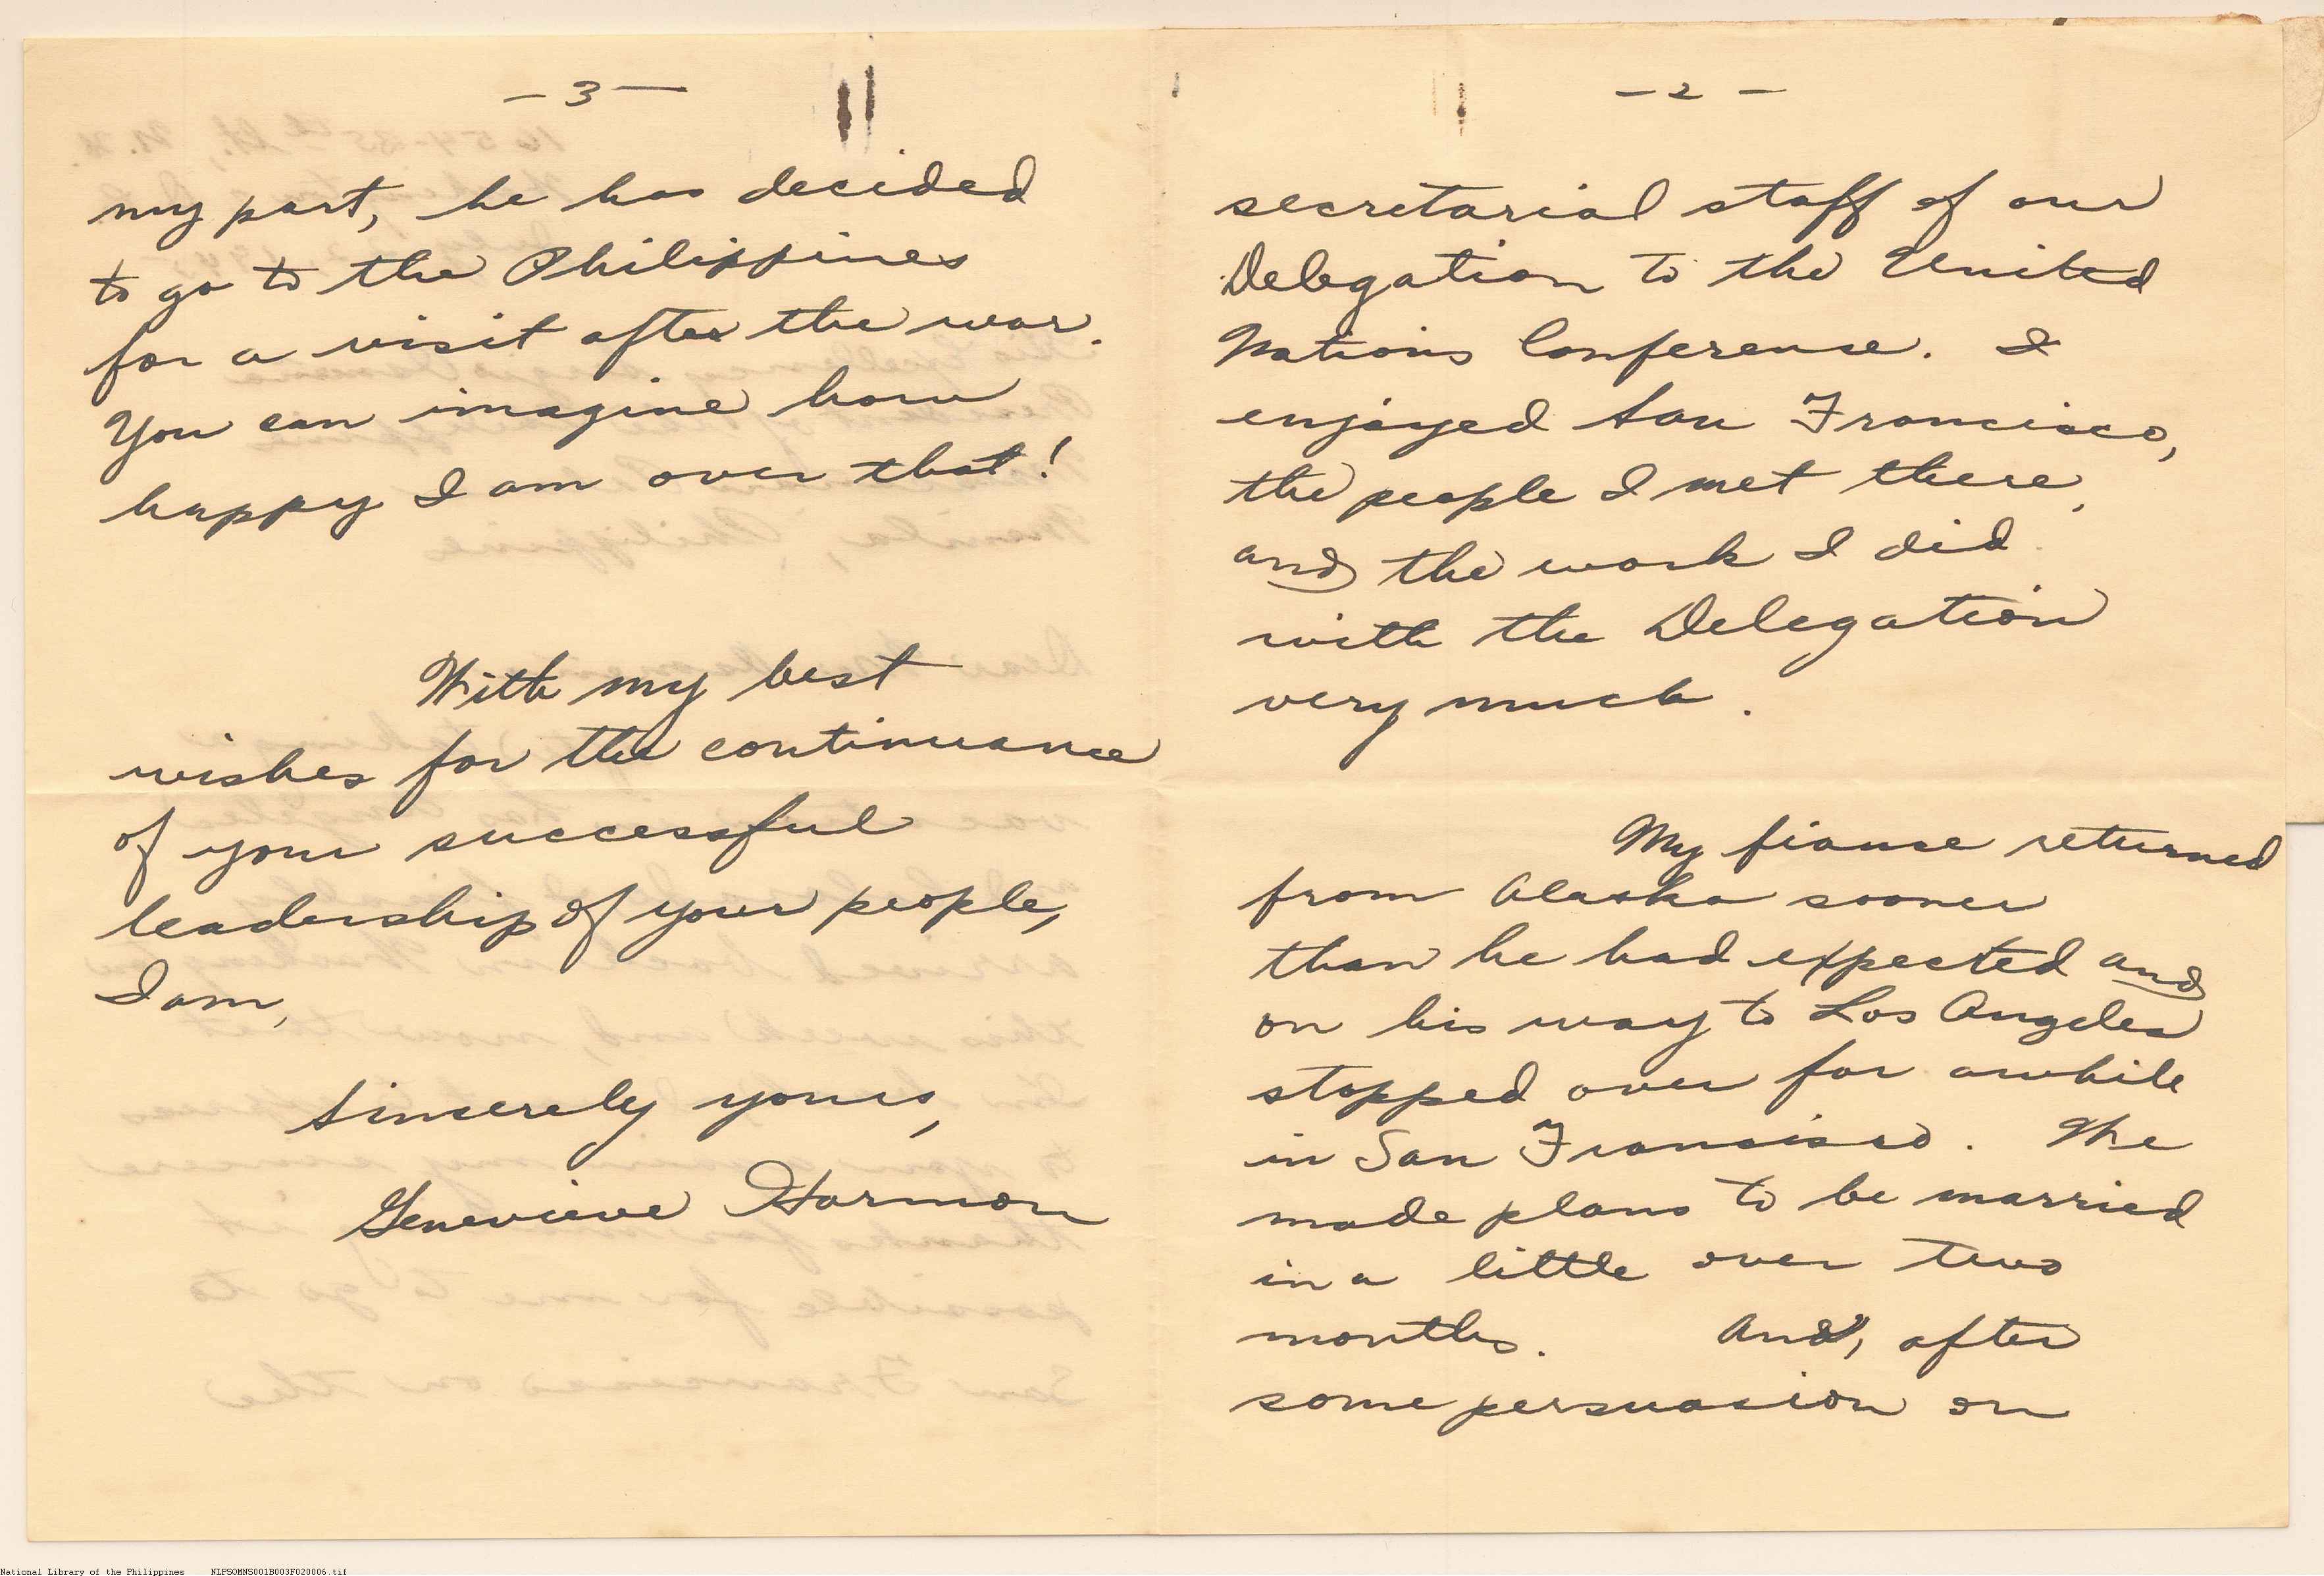 - 2 -
secretarial staff of our
Delegation to the United
Nations Conference. I
enjoyed San Francisco,
the people I met there,
and the work I did
with the Delegation
very much.
My fianse returned
from Alaska sooner
than he had expected and
on his way to Los Angeles
stopped over for awhile
in San Francisco. We
made plans to be married
in a little over two
months. And, after
some persuasion on
- 3 -
my part, he has decided
to go to the Philippines
for a visit after the war.
You can imagine how
happy I am over that!
With my best
wishes for the continuance
of your successful
leadership of your people,
I am,
Sincerely yours,
Genevieve Harmon
National Library of the Philippines NLPSOMNS001B003F020006.tif